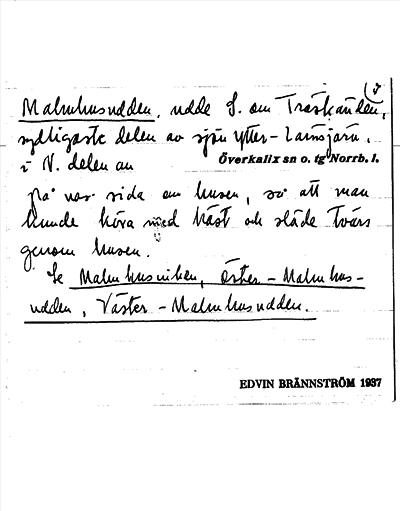 Malmhusudden, udde S. om Träskänden,
sydligaste delen av sjön Ytter-Lansjärv,
i N. delen av Överkalix sn o. tg Norrb. l.
på var sida om husen, så att man
kunde köra med häst och släde tvärs
genom husen.
Se Malmhusviken, Öster-Malmhus-
udden, Väster-Malmhusudden.
EDVIN BRÄNNSTRÖM 1937